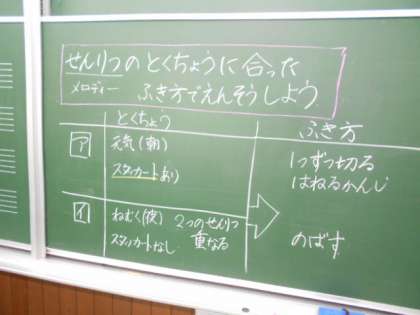 せんりつのとくちょうに合った
メロディー ふき方でえんそうしよう
とくちょう ふき方
ア 元気(朝) 1つずつ切る
スタッカートあり はねるかんじ
イ ねむく(夜) 2つのせんりつ
スタッカートなし 重なる のばす